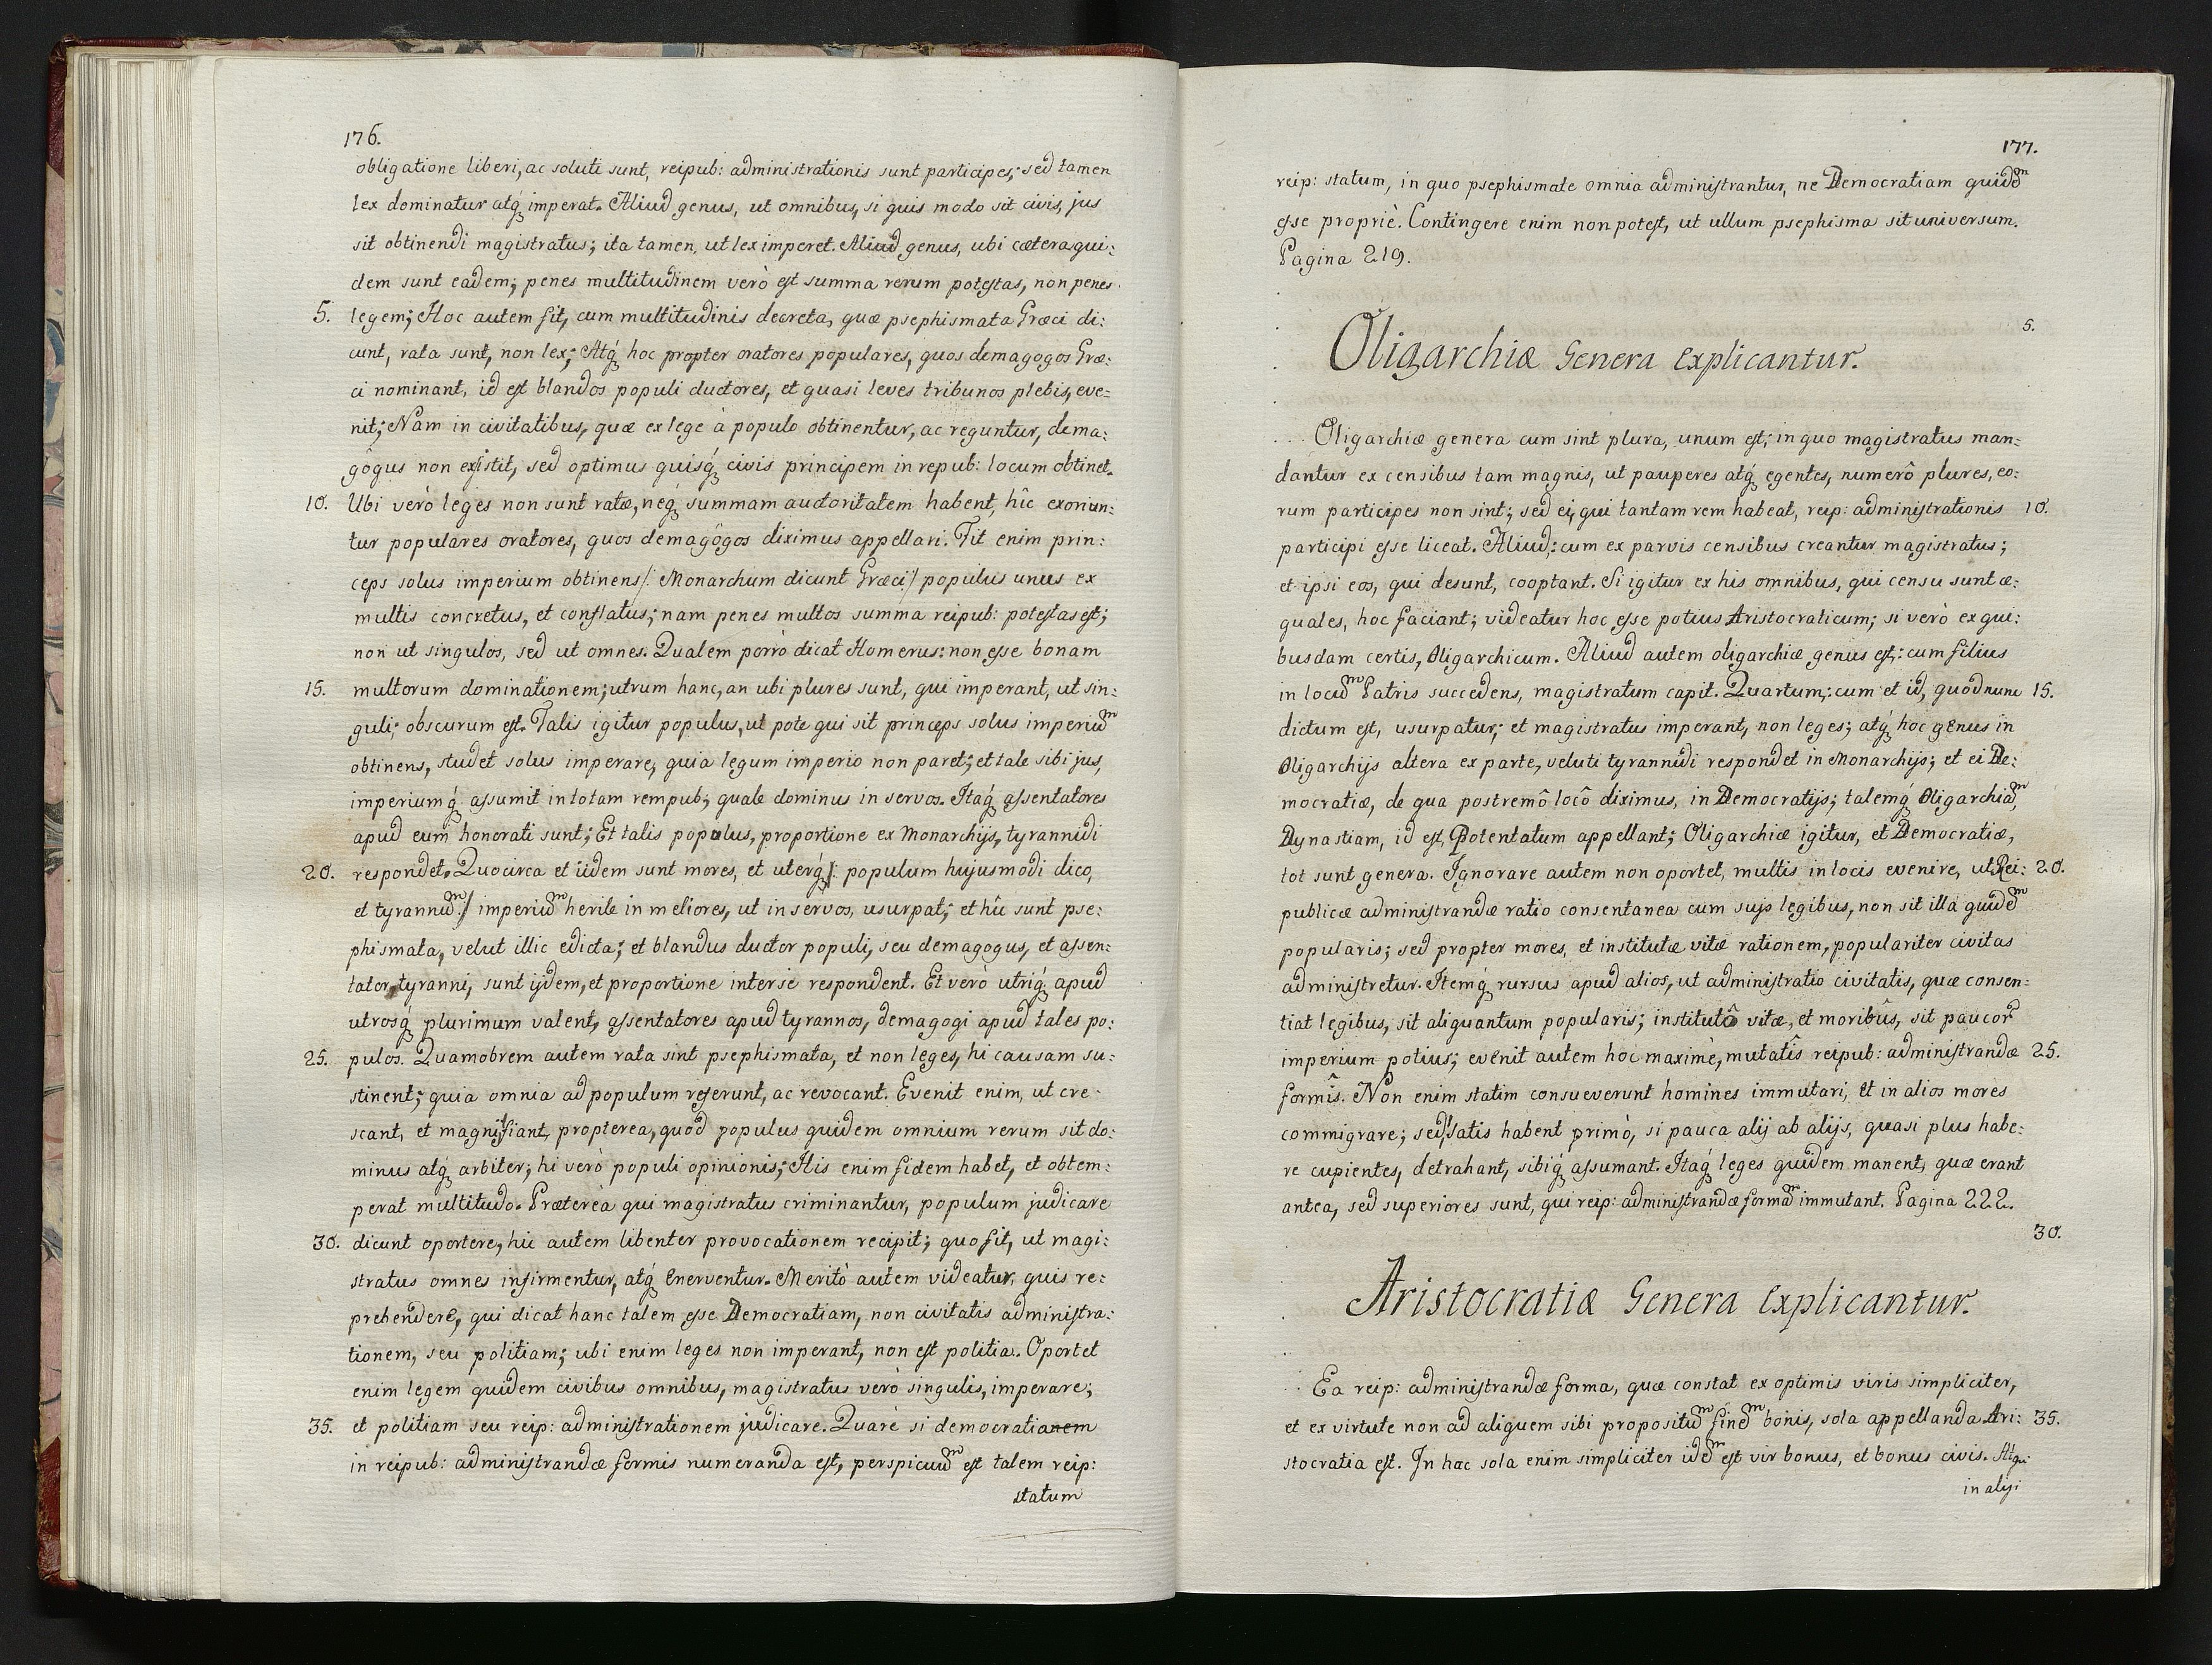 176.
obligatione liberi, ac soluti sunt, reipub: administrationis sunt participes; sed tamen
lex dominatur atq́; imperat. Aliud genus, ut omnibus, si quis modo sit civis, jus
sit obtinendi magistratus; ita tamen, ut lex imperet. Aliud genus, ubi cætera qui:
dem sunt eadem; penes multitudinem verò est summa rerum potestas, non penes
5. legem; Hoc autem fit, cum multitudinis decreta, quæ psephismata Græci di:
cunt, rata sunt, non lex; Atq́; hoc propter oratores populares, quos demagogos Græ:
ci nominant, id est blandos populi ductores, et quasi leves tribunos plebis, eve:
nit; Nam in civitatibus, quæ ex lege à populo obtinentur, ac reguntur, dema:
gôgus non existit, sed optimus quisq́; civis principem in repub: locum obtinet.
10. Ubi verò leges non sunt ratæ, neq́; summam auctoritatem habent, hîc exoriun:
tur populares oratores, quos demagôgos diximus appellari. Fit enim prin:
ceps solus imperium obtinens /: Monarchum dicunt Græci :/ populus unus ex
multis concretus, et conflatus; nam penes multos summa reipub: potestas est;
non ut singulos, sed ut omnes. Qualem porrò dicat Homerus: non esse bonam
15. multorum dominationem; utrum hanc, an ubi plures sunt, qui imperant, ut sin:
guli; obscurum est. Talis igitur populus, ut pote qui sit princeps solus imperiuᵐ
obtinens, studet solus imperare, quia legum imperio non paret; et tale sibi jus,
imperiumq́; assumit in totam rempub; quale dominus in servos. Itaq́; assentatores
apud eum honorati sunt; Et talis populus, proportione ex Monarchijs, tyrannidi
20. respondet. Quocirca et iidem sunt mores, et uterq́; /: populum hujusmodi dico,
et tyrannuᵐ :/ imperiuᵐ herile in meliores, ut in servos, usurpat; et hîc sunt pse:
phismata, velut illic edicta; et blandus ductor populi, seu demagogus, et assen:
tator tyranni, sunt ijdem, et proportione inter se respondent. Et verò utriq́; apud
utrosq́; plurimum valent, assentatores apud tyrannos, demagogi apud tales po:
25. pulos. Quamobrem autem rata sint psephismata, et non leges, hi causam su:
stinent; quia omnia ad populum referunt, ac revocant. Evenit enim, ut cre:
scant, et magni fiant, propterea, quod populus quidem omnium rerum sit do:
minus atq́; arbiter; hi verò populi opinionis; His enim fidem habet, et obtem:
perat multitudo. Præterea qui magistratus criminantur, populum judicare
30. dicunt oportere, hic autem libenter provocationem recipit; quo fit, ut magi:
stratus omnes infirmentur, atq́; enerventur. Meritò autem videatur, quis re:
prehendere, qui dicat hanc talem esse Democratiam, non civitatis administra:
tionem, seu politiam; ubi enim leges non imperant, non est politia. Oportet
enim legem quidem civibus omnibus, magistratus verò singulis, imperare;
35. et politiam seu reip: administrationem judicare. Quare si democratianem
in reipub: administrandæ formis numeranda est, perspicuuᵐ est talem reip:
statum
177.
reip: statum, in quo psephismate omnia administrantur, ne Democratiam quideᵐ
esse propriè. Contingere enim non potest, ut ullum psephisma sit universum.
Pagina 219.
5.
Oligarchiæ Genera Explicantur.
Oligarchiæ genera cum sint plura, unum est; in quo magistratus man:
dantur ex censibus tam magnis, ut pauperes atq́; egentes, numerô plures, eo:
rum participes non sint; sed ei, qui tantam rem habeat, reip: administrationis 10.
participi esse liceat. Aliud: cum ex parvis censibus creantur magistratus;
et ipsi eos, qui desunt, cooptant. Si igitur ex his omnibus, qui censu sunt æ:
quales, hoc faciant; videatur hoc esse potius Aristocraticum; si verò ex qui:
busdam certis, Oligarchicum. Aliud autem oligarchiæ genus est: cum filius
in locuᵐ Patris succedens, magistratum capit. Quartum: cum et id, quod nunc 15.
dictum est, usurpatur; et magistratus imperant, non leges; atq́; hoc genus in
Oligarchijs altera ex parte, veluti tyrannidi respondet in Monarchijs; et ei De:
mocratiæ, de qua postremô locô diximus, in Democratijs; talemq́; Oligarchiaᵐ,
Dynastiam, id est, Potentatum appellant; Oligarchiæ igitur, et Democratiæ,
tot sunt genera. Ignorare autem non oportet, multis in locis evenire, ut Rei: 20.
publicæ administrandæ ratio consentanea cum sujs legibus, non sit illa quideᵐ
popularis; sed propter mores, et institutæ vitæ rationem, populariter civitas
administretur. Itemq́; rursus apud alios, ut administratio civitatis, quæ consen:
tiat legibus, sit aliquantum popularis; institutô vitæ, et moribûs, sit paucor
imperium potius; evenit autem hoc maximè, mutatîs reipub: administrandæ 25.
formîs. Non enim statim consueverunt homines immutari, et in alios mores
commigrare; sed satis habent primò, si pauca alij ab alijs, quasi plus habe:
re cupientes, detrahant, sibiq́; assumant. Itaq́; leges quidem manent, quæ erant
antea, sed superiores sunt, qui reip: administrandæ formaᵐ immutant. Pagina 222.
30.
Aristocratiæ Genera Explicantur.
Ea reip: administrandæ forma, quæ constat ex optimis viris simpliciter,
et ex virtute non ad aliquem sibi propositûᵐ fineᵐ bonis, sola appellanda Ari: 35.
stocratia est. In hac sola enim simpliciter ideᵐ est vir bonus, et bonus civis. Atqui
in alijs